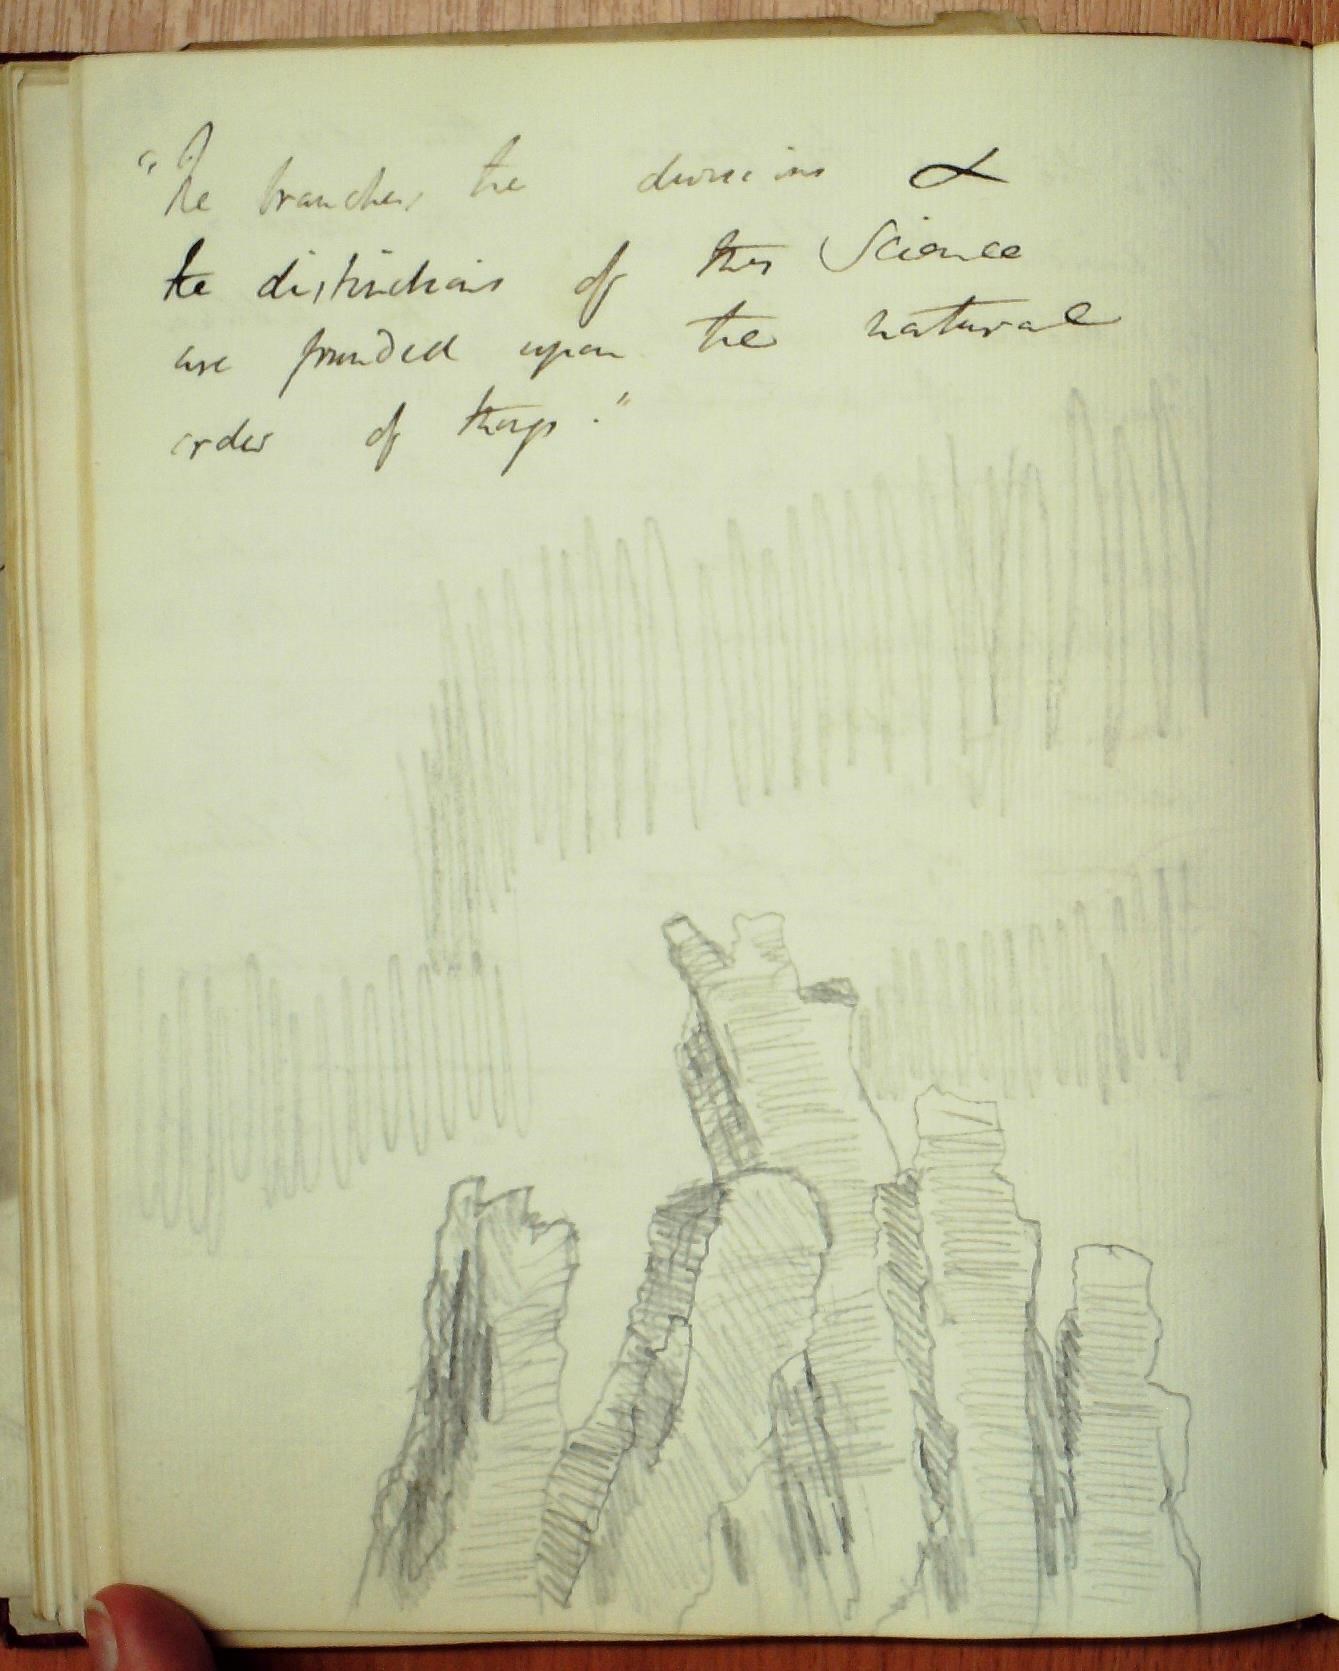 "The branches, the divisions &
the distinctions of this Science
are founded upon the natural
order of things."